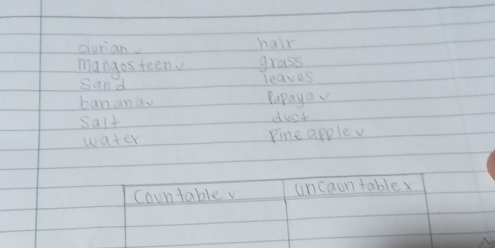 durian ✓
mangosteen ✓
sand
banana ✓
salt
water
hair
grass
leaves
Papaya ✓
duct
pineapple ✓
Countable ✓
uncauntable x